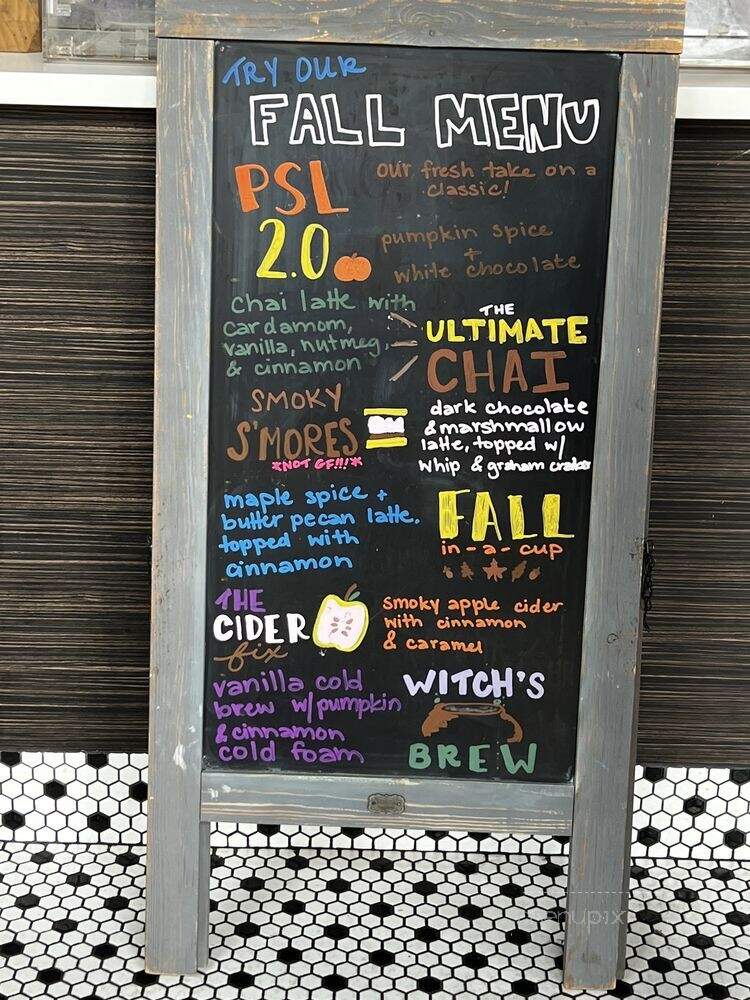 TRY OUR
FALL MENU
PSL
2.0
our fresh take on a
classic!
pumpkin spice
+
white chocolate
Chai latte with
cardamom,
vanilla, nutmeg,
& cinnamon
THE
ULTIMATE
CHAI
SMOKY
S'MORES
*NOT GF!!!*
dark chocolate
& marshmallow
latte, topped w/
whip & graham cracker
maple spice +
butter pecan latte.
topped with
cinnamon
FALL
in-a-cup
THE
CIDER
fix
smoky apple cider
with cinnamon
& caramel
vanilla cold
brew w/pumpkin
& cinnamon
cold foam
WITCH'S
BREW
menupix